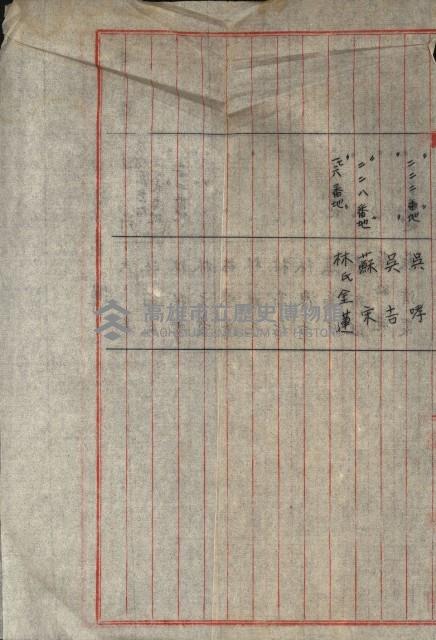 〃 二二二番地 吳哮
〃 〃 吳吉
〃 二二八番地 蘇宋
一七六番地 林氏金蓮
高雄市立歷史博物館
KAOHSIUNG MUSEUM OF HISTORY